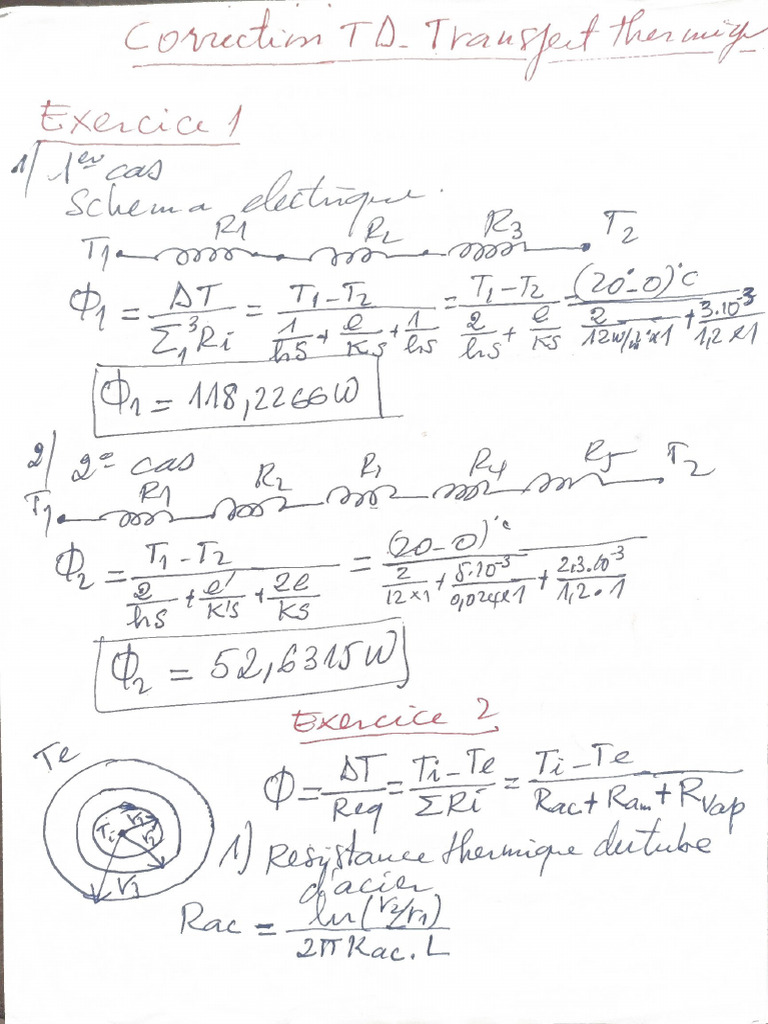 Correction TD_ Transfert thermique
Exercice 1
1/ 1er cas
Schema electrique.
T1 R1 R2 R3 T2
Φ1 = ΔT / Σ1^3 Ri = (T1-T2) / (1/hS + e/KS + 1/hS) = (T1-T2) / (2/hS + e/KS) = (20°-0)°C / (2/(12 w/m²×1) + 3.10^-3/(1,2×1))
Φ1 = 118,2266W
2/ 2e cas
T1 R1 R2 R3 R4 R5 T2
Φ2 = (T1-T2) / (2/hS + e'/K'S + 2e/KS) = (20-0)°C / (2/(12×1) + 5.10^-3/(0,024×1) + 2.3.10^-3/(1,2.1))
Φ2 = 52,6315W
Exercice 2
Te
Ti r1 r2 r3
Φ = ΔT/Req = (Ti-Te)/ΣRi = (Ti-Te)/(Rac + Ram + Rvap)
1) Resistance thermique du tube
d'acier
Rac = ln(r2/r1) / (2πKac.L)